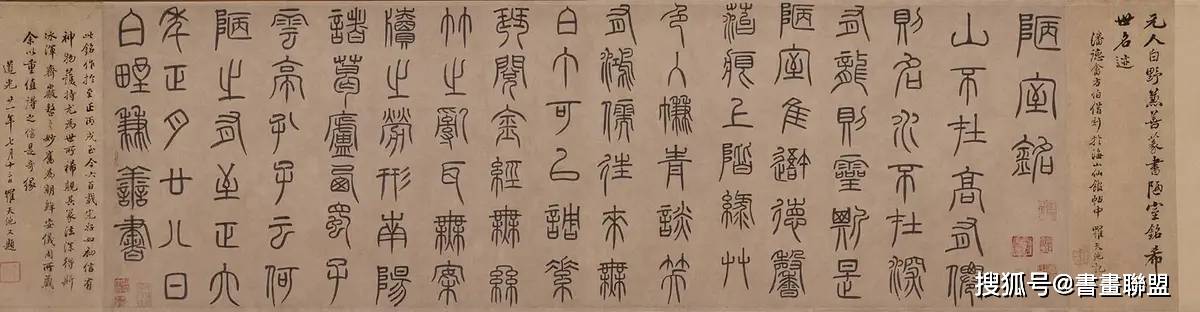 元人白野兼善篆書陋室銘希
世名迹
潘德畬方伯借刻於海山仙館帖中 羅天池記
陋室銘
山不在高有僊
則名水不在深
有龍則靈斯是
陋室惟吾德馨
苔痕上階綠艸
色入簾青談笑
有鴻儒往來無
白丁可以調素
琴閱金經無絲
竹之亂耳無案
牘之勞形南陽
諸葛廬西蜀子
雲亭孔子云何
陋之有至正六
年正月廿八日
白野兼善書
此銘作於至正丙戌至今六百載完好如初信有
神物護持尤為世所稀覯其篆法深得斯
冰渾齊嚴整之妙舊為朝鮮安儀周所藏
余以重值得之信是奇緣
道光廿一年七月十三日羅天池又題
搜狐号@書畫聯盟